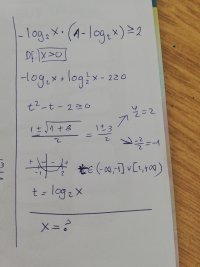 -log₂x · (1-log₂x) ≥ 2
Df: x>0
-log₂x + log₂²x - 2 ≥ 0
t² - t - 2 ≥ 0
(1±√(1+8))/2 = (1±3)/2 ↗ 4/2 = 2 ↘ -2/2 = -1
+ - + -1 2 t ∈ (-∞,-1] ∨ [2,+∞)
t = log₂x
x = ?